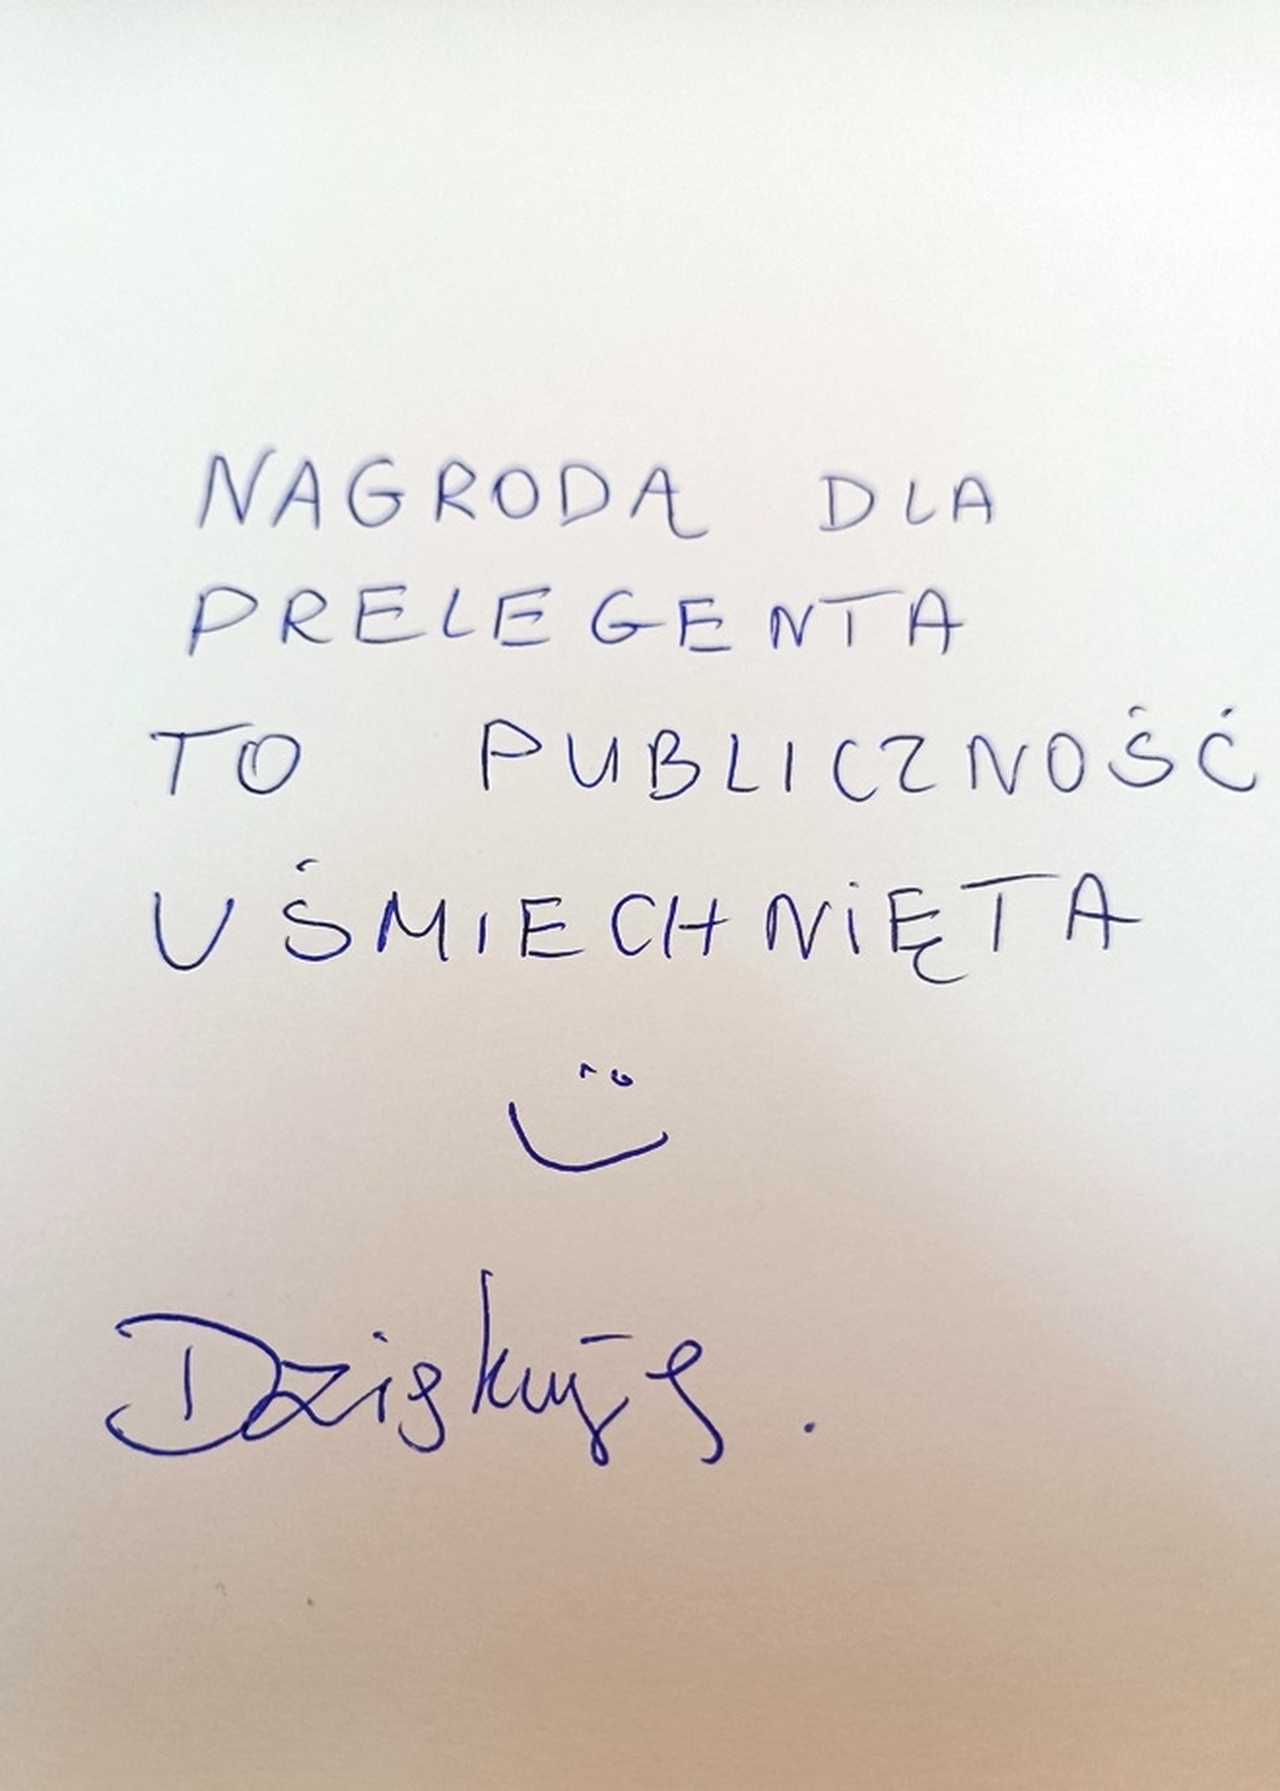 NAGRODĄ DLA
PRELEGENTA
TO PUBLICZNOŚĆ
UŚMIECHNIĘTA
Dziękuję.